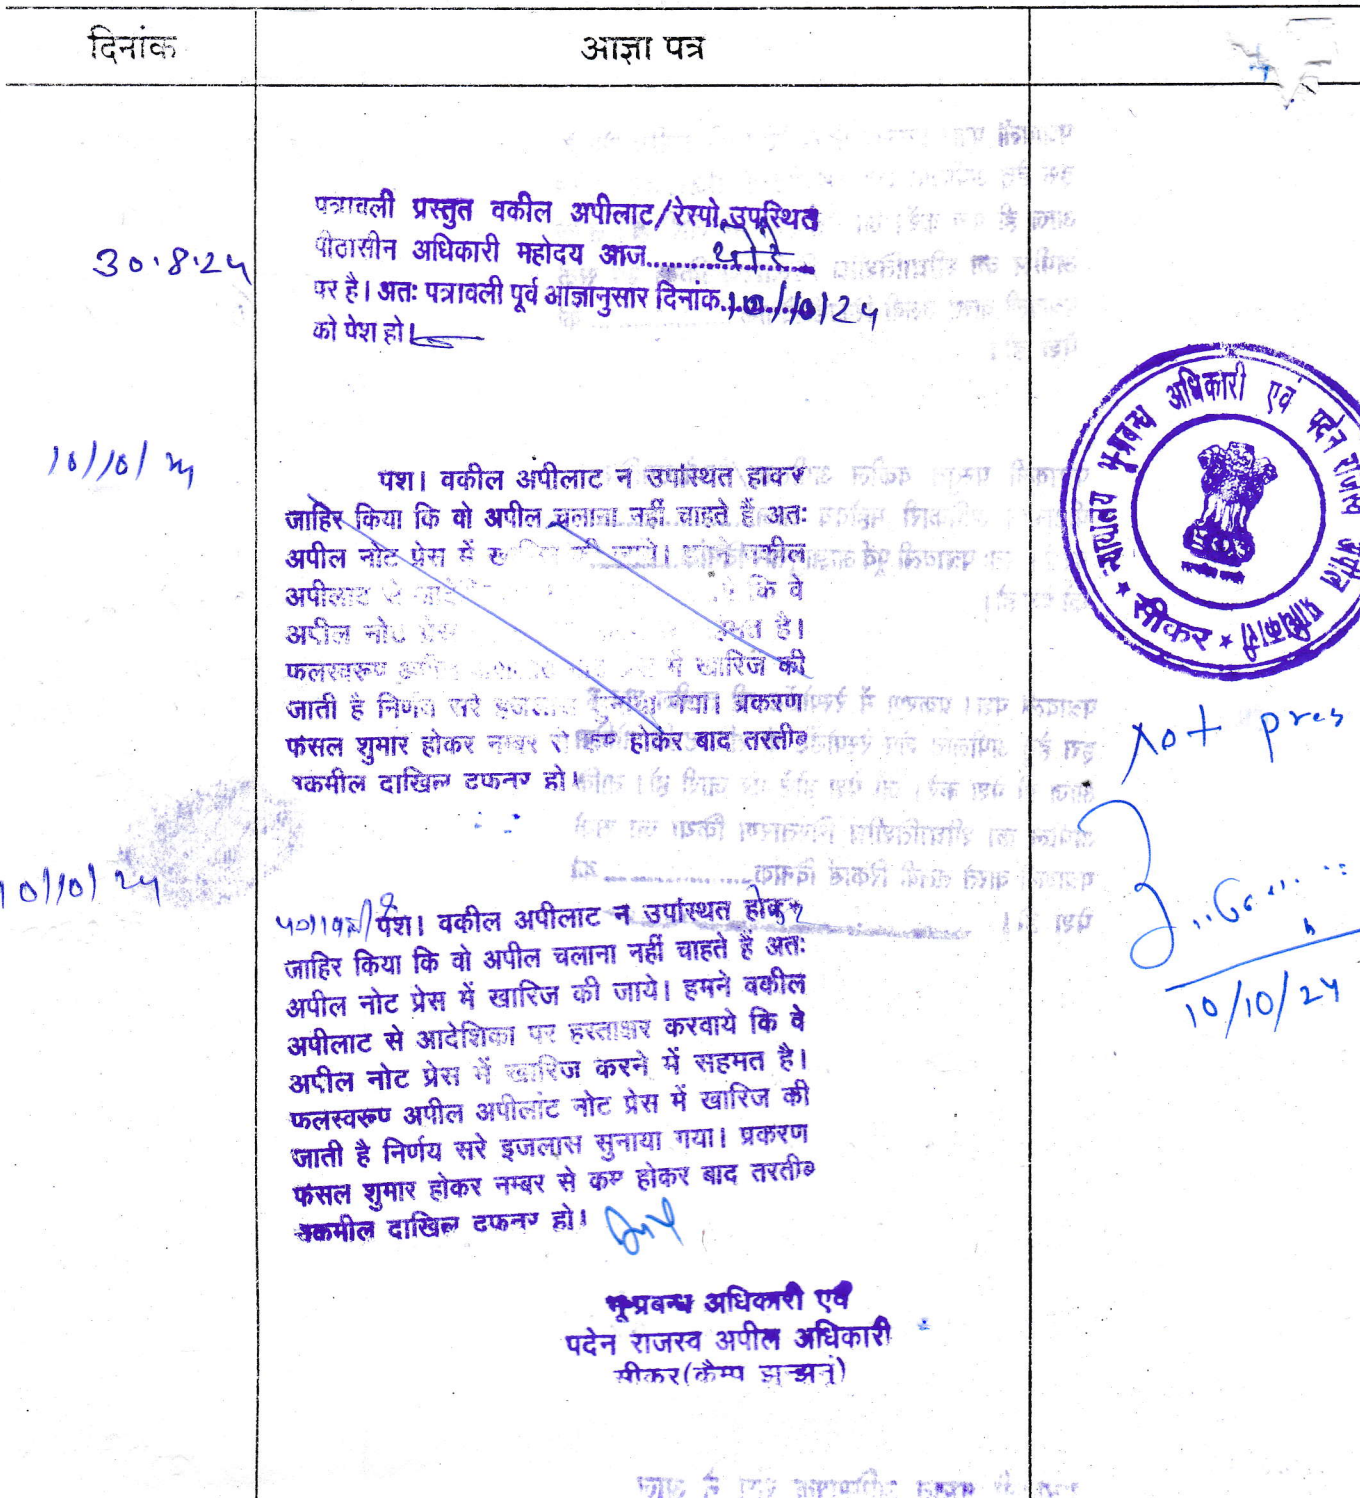 दिनांक
आज्ञा पत्र
30.8.24
पत्रावली प्रस्तुत वकील अपीलाट/रेस्पो. उपस्थित
पीठासीन अधिकारी महोदय आज..................
पर है। अतः पत्रावली पूर्व आज्ञानुसार दिनांक 10/10/24
को पेश हो।
10/10/24
पेश। वकील अपीलाट न उपस्थित होकर
जाहिर किया कि वो अपील चलाना नहीं चाहते है अतः
अपील नोट प्रेस में की जाये। हमने वकील
अपीलाट से कि वे
अपील नोट प्रेस है।
फलस्वरूप में खारिज की
जाती है निर्णय सरे इजलास सुनाया गया। प्रकरण
फैसल शुमार होकर नम्बर से कम होकर बाद तरतीब
तकमील दाखिल दफ्तर हो।
10/10/24
पेश। वकील अपीलाट न उपस्थित होकर
जाहिर किया कि वो अपील चलाना नहीं चाहते है अतः
अपील नोट प्रेस में खारिज की जाये। हमने वकील
अपीलाट से आदेशिका पर हस्ताक्षर करवाये कि वे
अपील नोट प्रेस में खारिज करने में सहमत है।
फलस्वरूप अपील अपीलांट नोट प्रेस में खारिज की
जाती है निर्णय सरे इजलास सुनाया गया। प्रकरण
फैसल शुमार होकर नम्बर से कम होकर बाद तरतीब
तकमील दाखिल दफ्तर हो।
भू-प्रबन्ध अधिकारी एवं
पदेन राजस्व अपील अधिकारी
सीकर (कैम्प झुन्झनूं)
न्यायालय भू-प्रबन्ध अधिकारी एवं पदेन राजस्व अपील प्राधिकारी
★ सीकर ★
Not pres
10/10/24